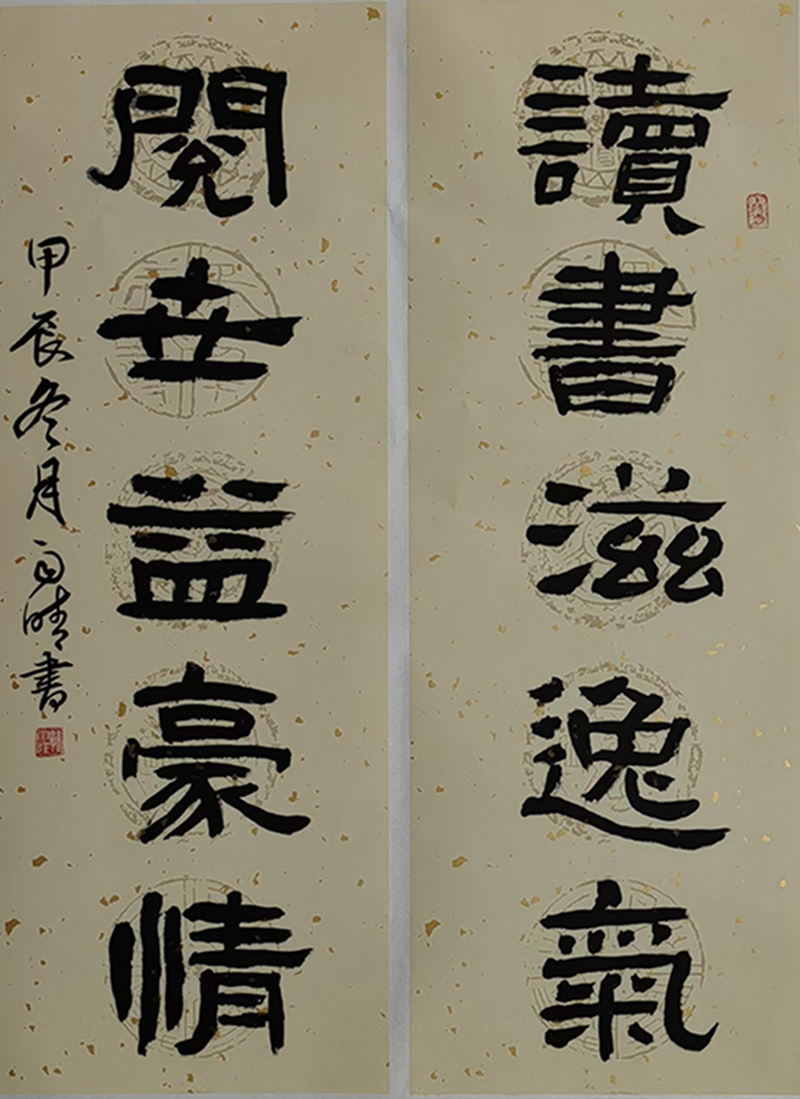 讀書滋逸氣
閱世益豪情
甲辰冬月雨晴書